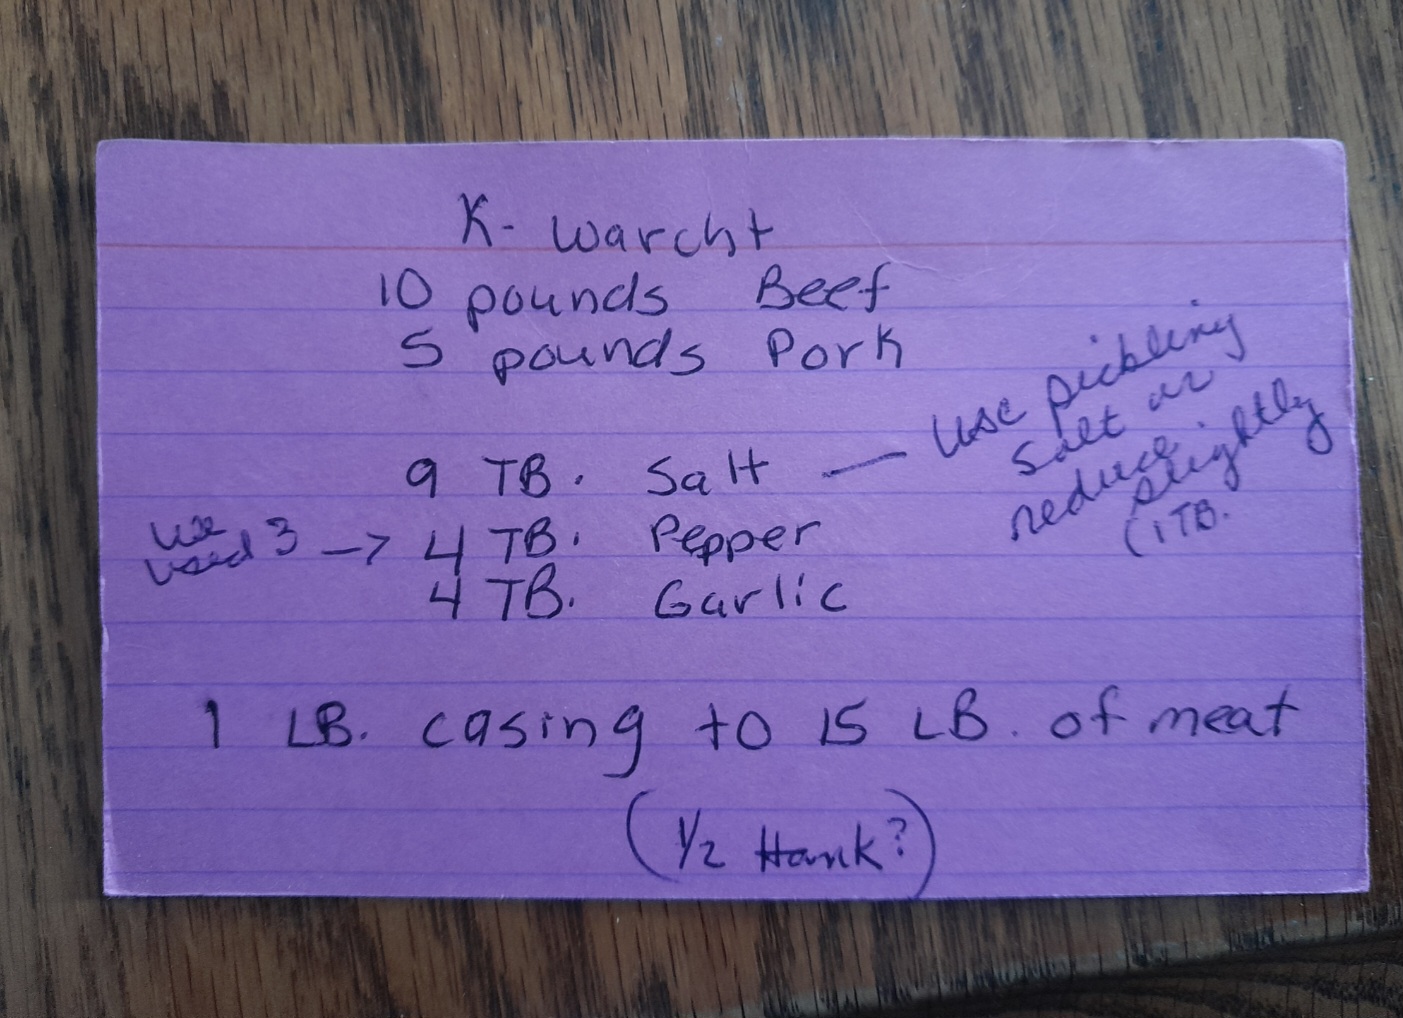 K- Warcht
10 pounds Beef
5 pounds Pork
9 TB. Salt — use pickling
salt or
reduce
slightly
(1 TB.
we
used 3 -> 4 TB. Pepper
4 TB. Garlic
1 LB. casing to 15 LB. of meat
(1/2 Hank?)